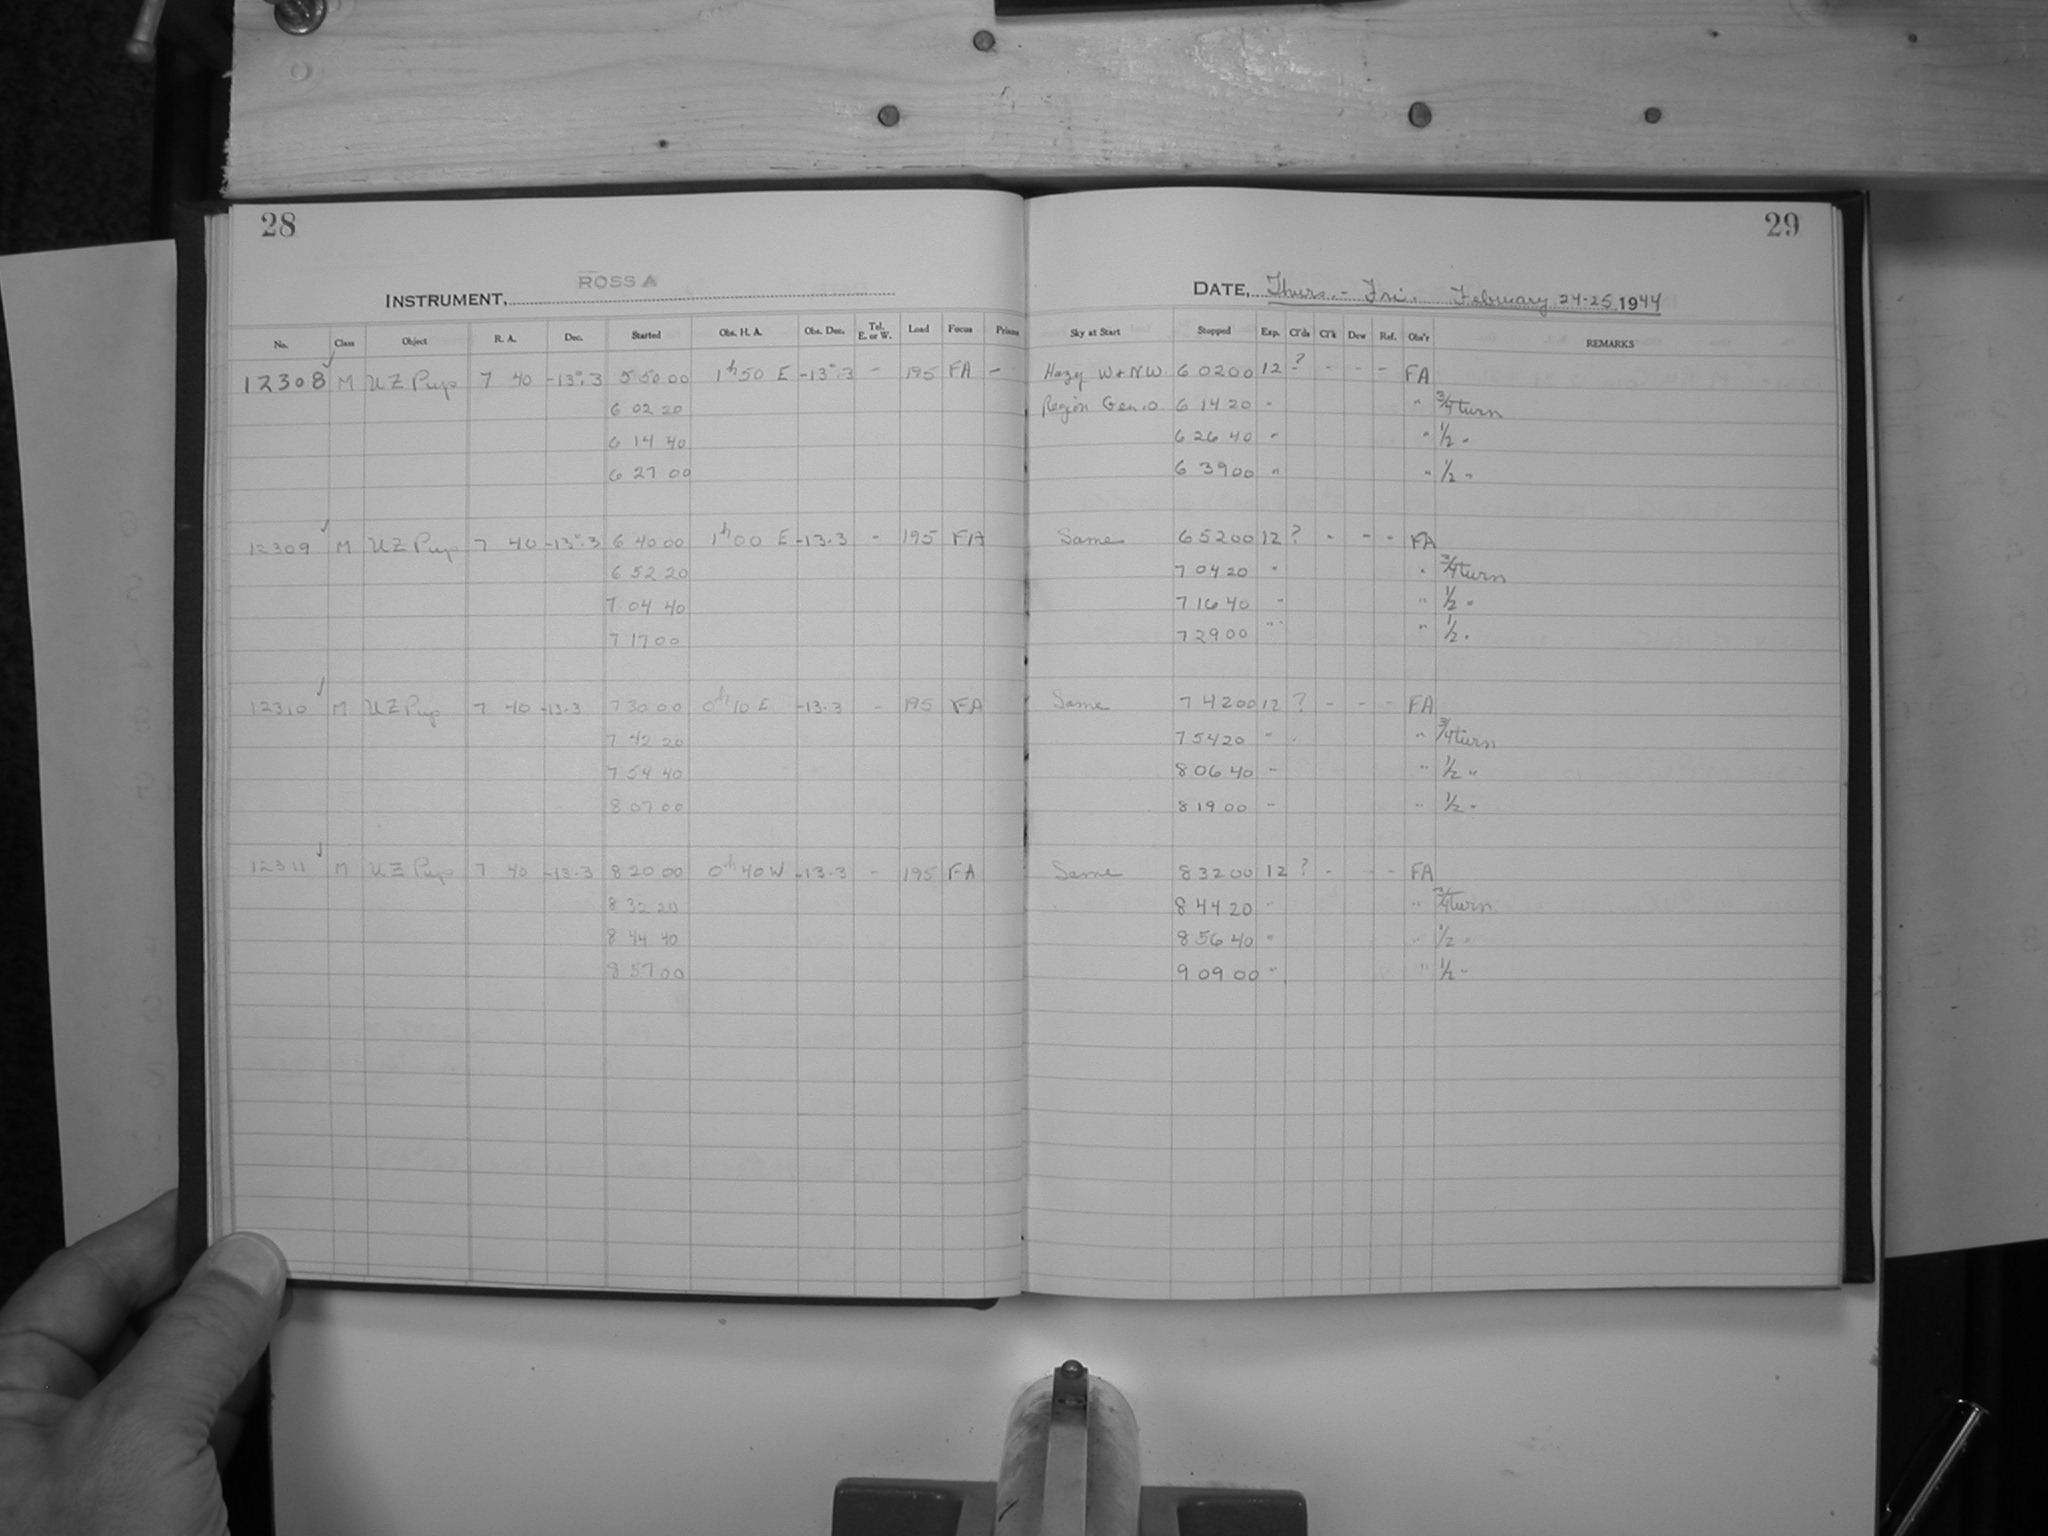 28
ROSS A
INSTRUMENT,
No. Class Object R. A. Dec. Started Obs. H. A. Obs. Dec. Tel. E. or W. Load Focus Prisms
12308 ✓ M UZ Pup 7 40 -13°.3 5 50 00 1h50 E -13°.3 - 195 FA -
6 02 20
6 14 40
6 27 00
12309 ✓ M UZ Pup 7 40 -13°.3 6 40 00 1h00 E -13.3 - 195 FA
6 52 20
7 04 40
7 17 00
12310 ✓ M UZ Pup 7 40 -13.3 7 30 00 0h10 E -13.3 - 195 FA
7 42 20
7 54 40
8 07 00
12311 ✓ M UZ Pup 7 40 -13.3 8 20 00 0h40 W -13.3 - 195 FA
8 32 20
8 44 40
8 57 00
29
DATE, Thurs. - Fri. February 24-25, 1944
Sky at Start Stopped Exp. Cl'ds Cl'k Dew Ref. Obs'r REMARKS
Hazy W + NW 6 02 00 12 ? - - - FA
Region Gen. O. 6 14 20 " " 3/4 turn
6 26 40 " " 1/2 "
6 39 00 " " 1/2 "
Same 6 52 00 12 ? - - - FA
7 04 20 " " 3/4 turn
7 16 40 " " 1/2 "
7 29 00 " " 1/2 "
Same 7 42 00 12 ? - - - FA
7 54 20 " " 3/4 turn
8 06 40 " " 1/2 "
8 19 00 " " 1/2 "
Same 8 32 00 12 ? - - - FA
8 44 20 " " 3/4 turn
8 56 40 " " 1/2 "
9 09 00 " " 1/2 "